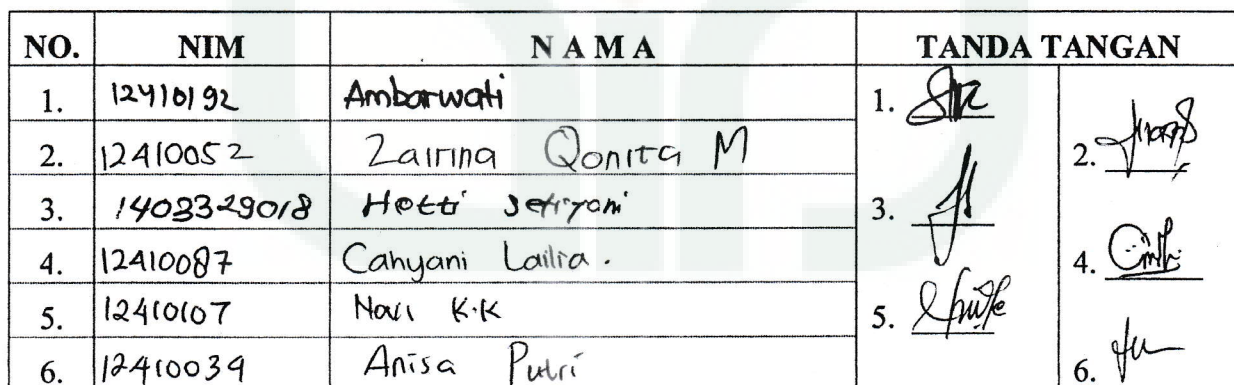 NO. NIM N A M A TANDA TANGAN
1. 12410192 Ambarwati 1.
2. 12410052 Zairina Qonita M 2.
3. 1403329018 Hetti Setiyani 3.
4. 12410087 Cahyani Lailia. 4.
5. 12410107 Novi K.K 5.
6. 12410039 Anisa Putri 6.